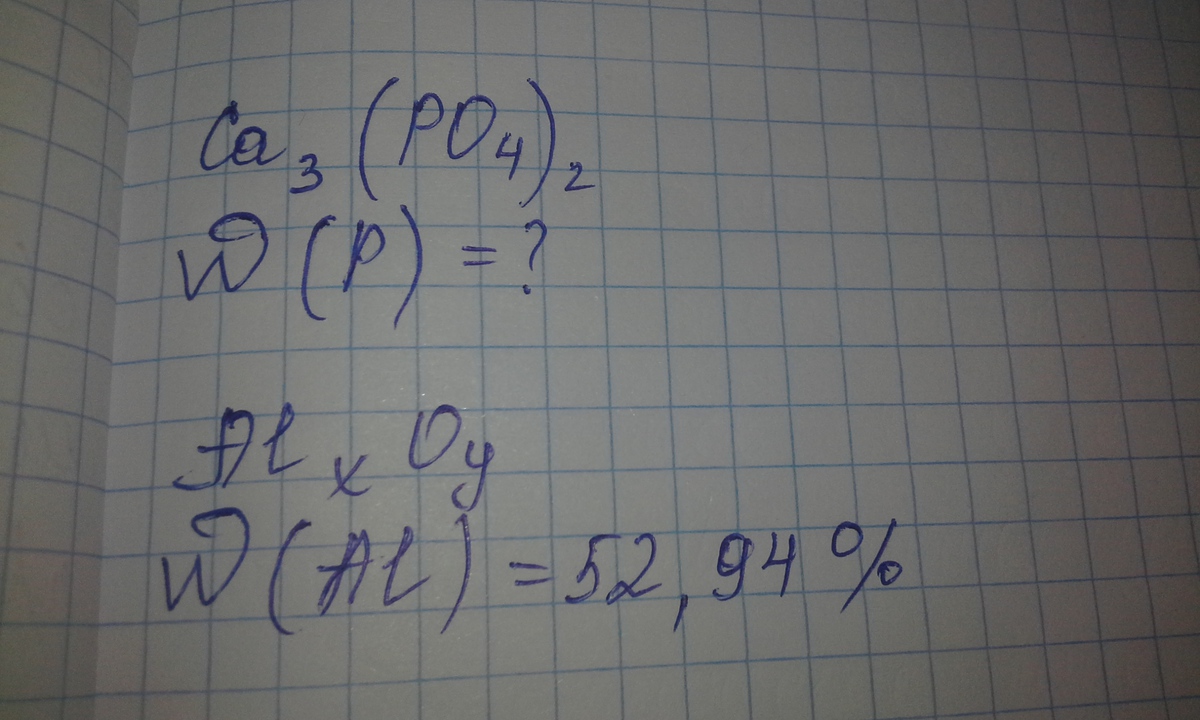 Ca₃(PO₄)₂
W(P) = ?
AlₓOy
W(Al) = 52,94%